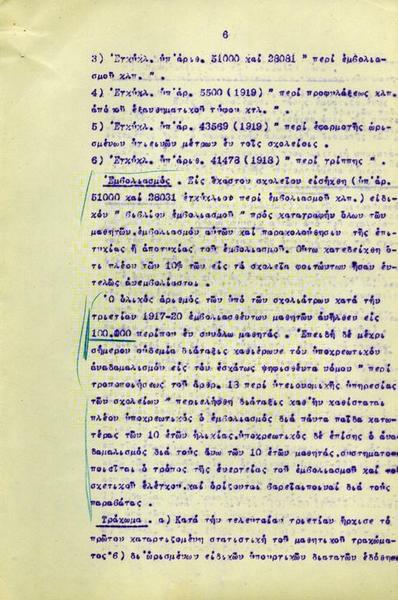 6
3) Ἐγκύκλ. ὑπ' ἀριθ. 51000 καί 28031 " περί ἐμβολια-
σμοῦ κλπ. ".
4) Ἐγκύκλ. ὑπ' ἀρ. 5500 (1919) " περί προφυλάξεως κλπ.
ἀπό τοῦ ἐξανθηματικοῦ τύφου κτλ. ".
5) Ἐγκύκλ. ὑπ' ἀρ. 43569 (1919) " περί ἐφαρμογῆς ὡρι-
σμένων ὑγιεινῶν μέτρων ἐν τοῖς σχολείοις.
6) Ἐγκύκλ. ὑπ' ἀριθ. 41478 (1918) " περί γρίππης ".
Ἐμβολιασμός. Εἰς ἕκαστον σχολεῖον εἰσήχθη (ὑπ' ἀρ.
51000 καί 28031 ἐγκύκλιον περί ἐμβολιασμοῦ κλπ.) εἰδι-
κόν " βιβλίον ἐμβολιασμοῦ " πρός καταγραφήν ὅλων τῶν
μαθητῶν, ἐμβολιασμόν αὐτῶν καί παρακολούθησιν τῆς ἐπι-
τυχίας ἤ ἀποτυχίας τοῦ ἐμβολιασμοῦ. Οὕτω κατεδείχθη ὅ-
τι πλέον τῶν 10% τῶν εἰς τά σχολεῖα φοιτώντων ἦσαν ἐν-
τελῶς ἀνεμβολίαστοι.
Ὁ ὁλικός ἀριθμός τῶν ὑπό τῶν σχολιάτρων κατά τήν
τριετίαν 1917-20 ἐμβολιασθέντων μαθητῶν ἀνῆλθεν εἰς
100.000 περίπου ἐν συνόλω μαθητάς. Ἐπειδή δέ μέχρι
σήμερον οὐδεμία διάταξις καθιέρωνε τόν ὑποχρεωτικόν
ἀναδαμαλισμόν εἰς τόν ἐσχάτως ψηφισθέντα νόμον " περί
τροποποιήσεως τοῦ ἄρθρ. 13 περί ὑγειονομικῆς ὑπηρεσίας
τῶν σχολείων " περιελήφθη διάταξις καθ' ἥν καθίσταται
πλέον ὑποχρεωτικός ὁ ἐμβολιασμός διά πάντα παῖδα κατω-
τέρας τῶν 10 ἐτῶν ἡλικίας, ὑποχρεωτικός δέ ἐπίσης ὁ ἀνα-
δαμαλισμός διά τούς ἄνω τῶν 10 ἐτῶν μαθητάς, συστηματο-
ποιεῖται ὁ τρόπος τῆς ἐνεργείας τοῦ ἐμβολιασμοῦ καί τοῦ
σχετικοῦ ἐλέγχου, καί ὁρίζονται βαρεῖαι ποιναί διά τούς
παραβάτας.
Τράχωμα. α) Κατά τήν τελευταίαν τριετίαν ἤρχισε τό
πρῶτον καταρτιζομένη στατιστική τοῦ μαθητικοῦ τραχώμα-
τος· β) δι' ὡρισμένων εἰδικῶν ὑπουργικῶν διαταγῶν ἐδόθησαν